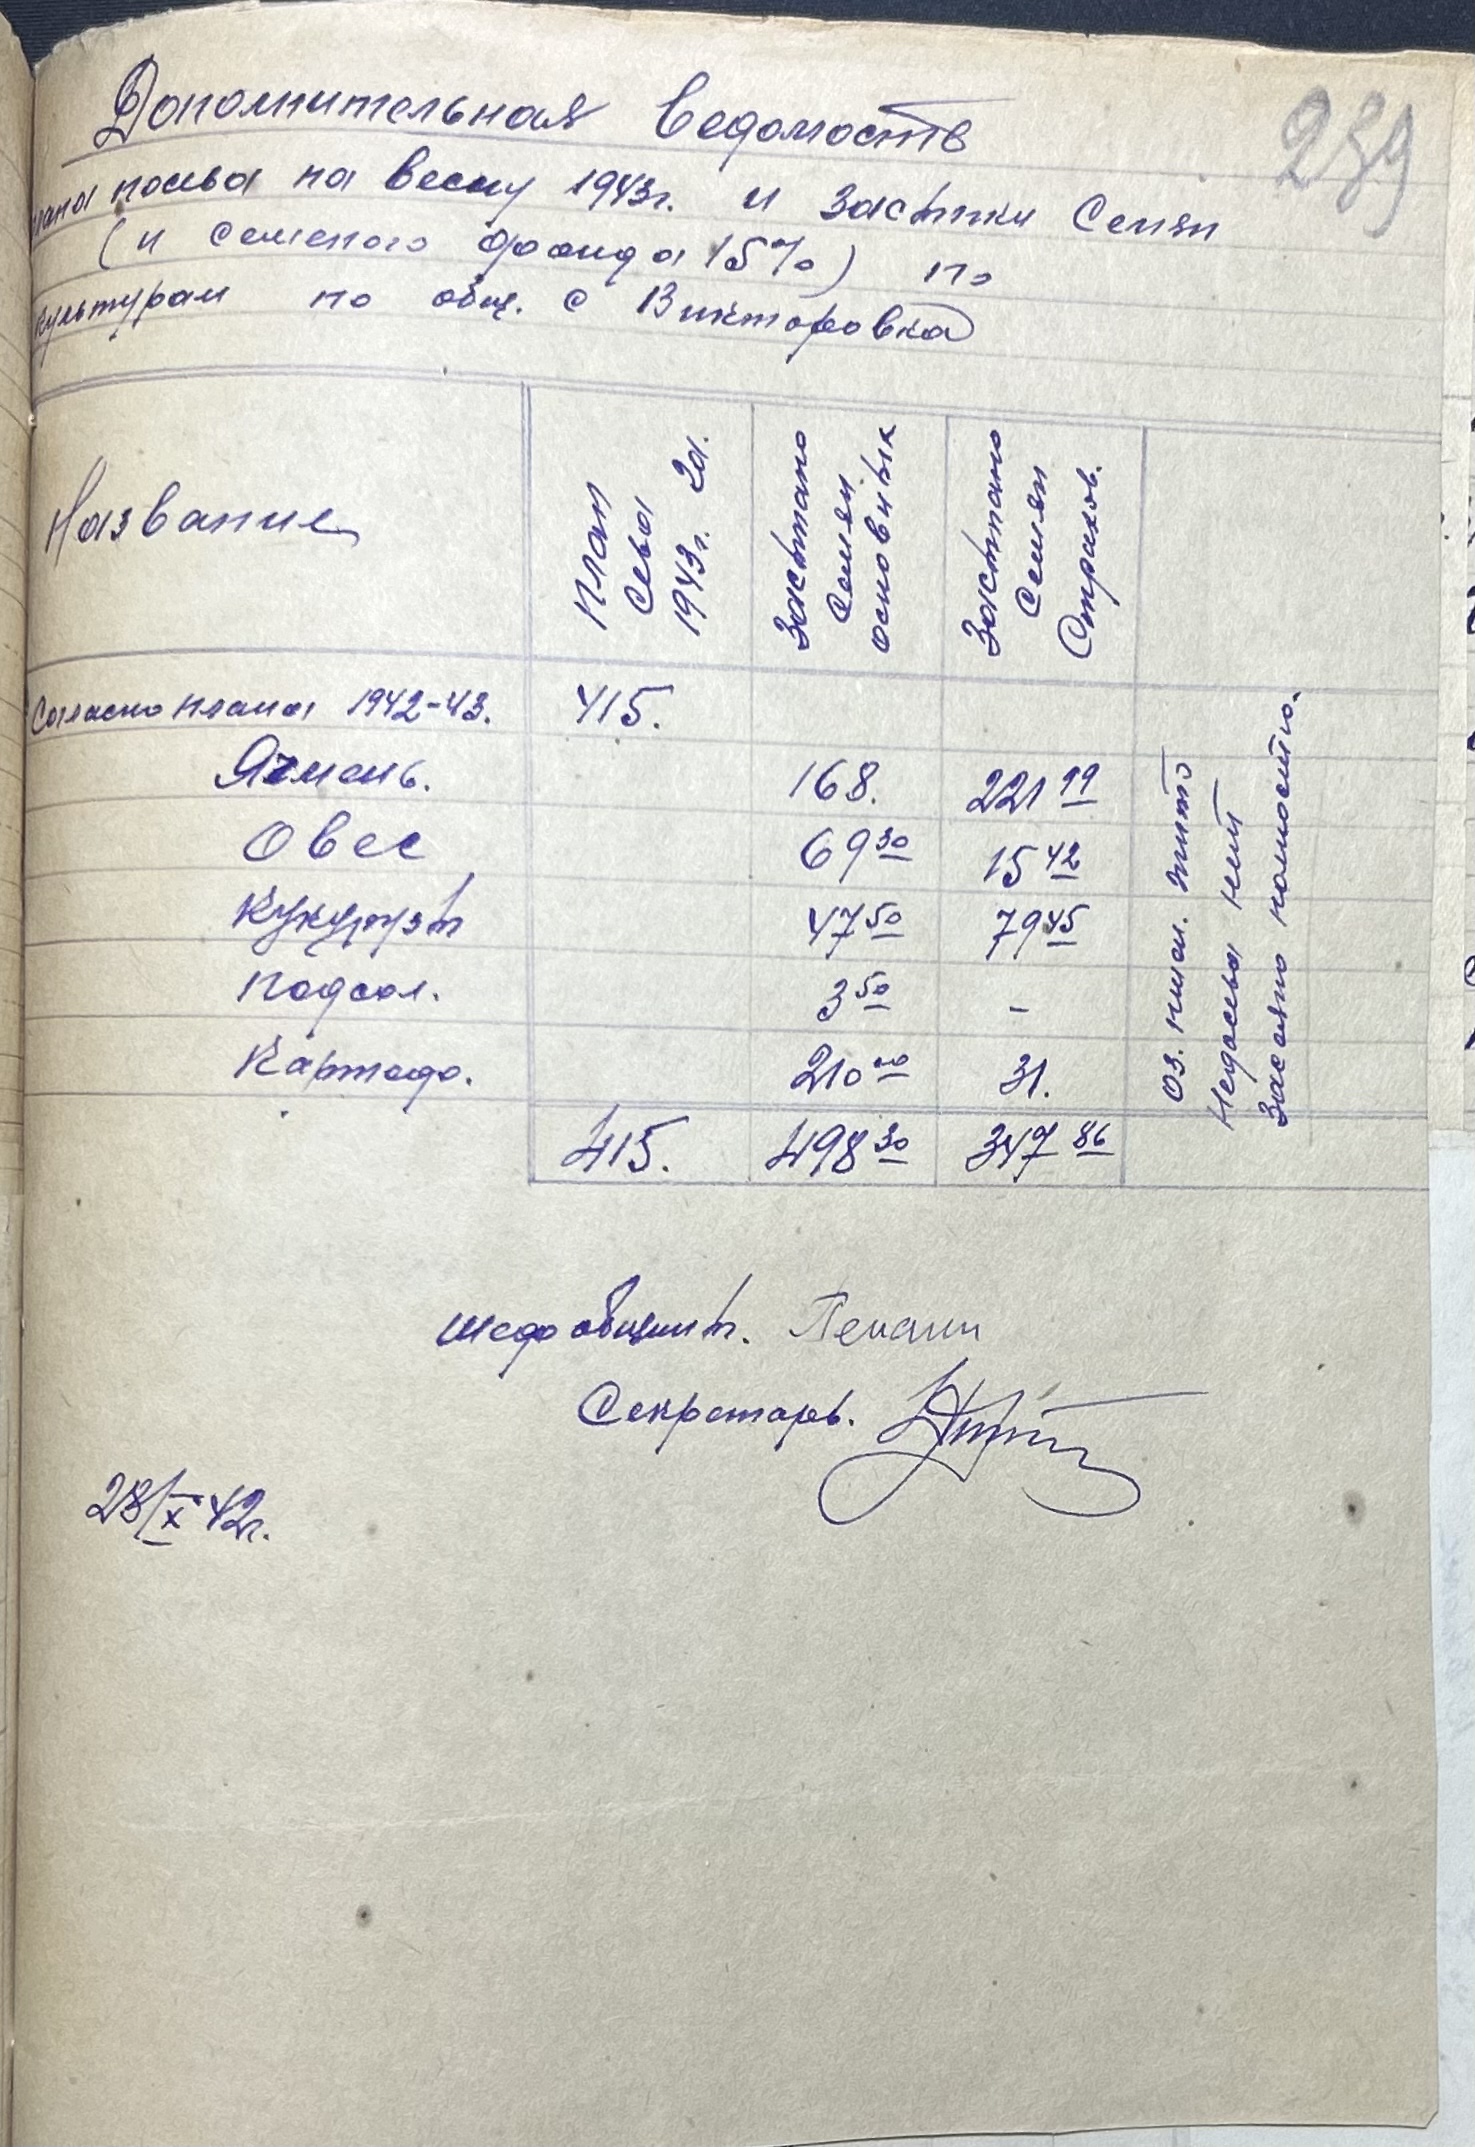 239
Дополнительная ведомость
плана посева на весну 1943г. и засыпки семян
(и семеного фонда 15%) по
культурам по общ. с Викторовка
Название
План сева 1943г. га.
Засыпано семян основных
Засыпано семян страхов.
Согласно плана 1942-43. 415.
Ячмень. 168. 221 99
Овес 69 30 15 42
Кукурузы 47 50 79 45
Подсол. 3 50 -
Картофо. 210 00 31.
415. 498 30 347 86
Оз. пшен. жито
недосева нет
Засеяно полностью.
Шеф общины.
Секретарь.
28/X 42г.